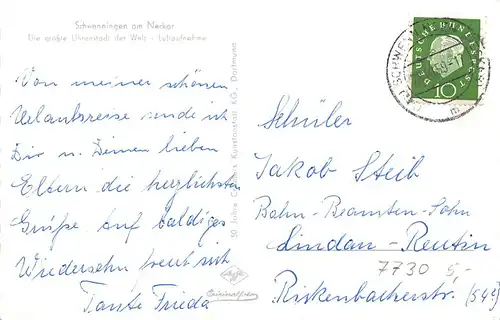 Schwenningen am Neckar
Die größte Uhrenstadt der Welt - Luftaufnahme
Von meiner schönen
Urlaubsreise sende ich
Dir u. Deinen lieben
Eltern die herzlichsten
Grüße. Auf baldiges
Wiedersehn freut sich
Tante Frieda
50 Jahre Cramers Kunstanstalt KG., Dortmund
Agfa
DEUTSCHE BUNDESPOST
10
Schüler
Jakob Steib
Bahn-Beamten-Sohn
Lindau-Reutin
7730 5,-
Rickenbacherstr. (54?)